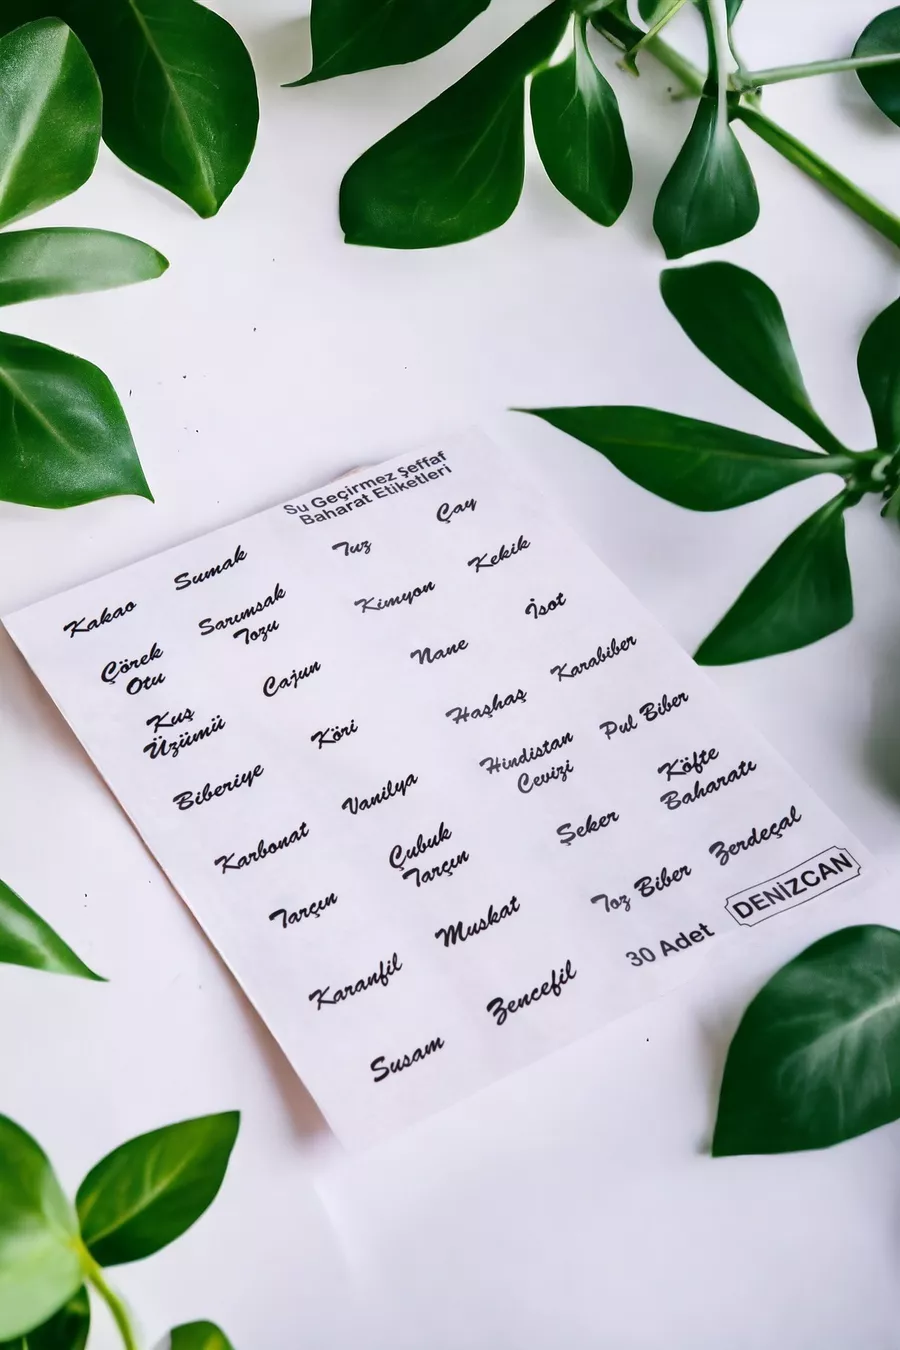 Su Geçirmez Şeffaf
Baharat Etiketleri
Kakao
Sumak
Tuz
Çay
Çörek
Otu
Sarımsak
Tozu
Kimyon
Kekik
Kuş
Üzümü
Cajun
Nane
İsot
Biberiye
Köri
Haşhaş
Karabiber
Karbonat
Vanilya
Hindistan
Cevizi
Pul Biber
Tarçın
Çubuk
Tarçın
Şeker
Köfte
Baharatı
Karanfil
Muskat
Toz Biber
Zerdeçal
Susam
Zencefil
30 Adet
DENİZCAN